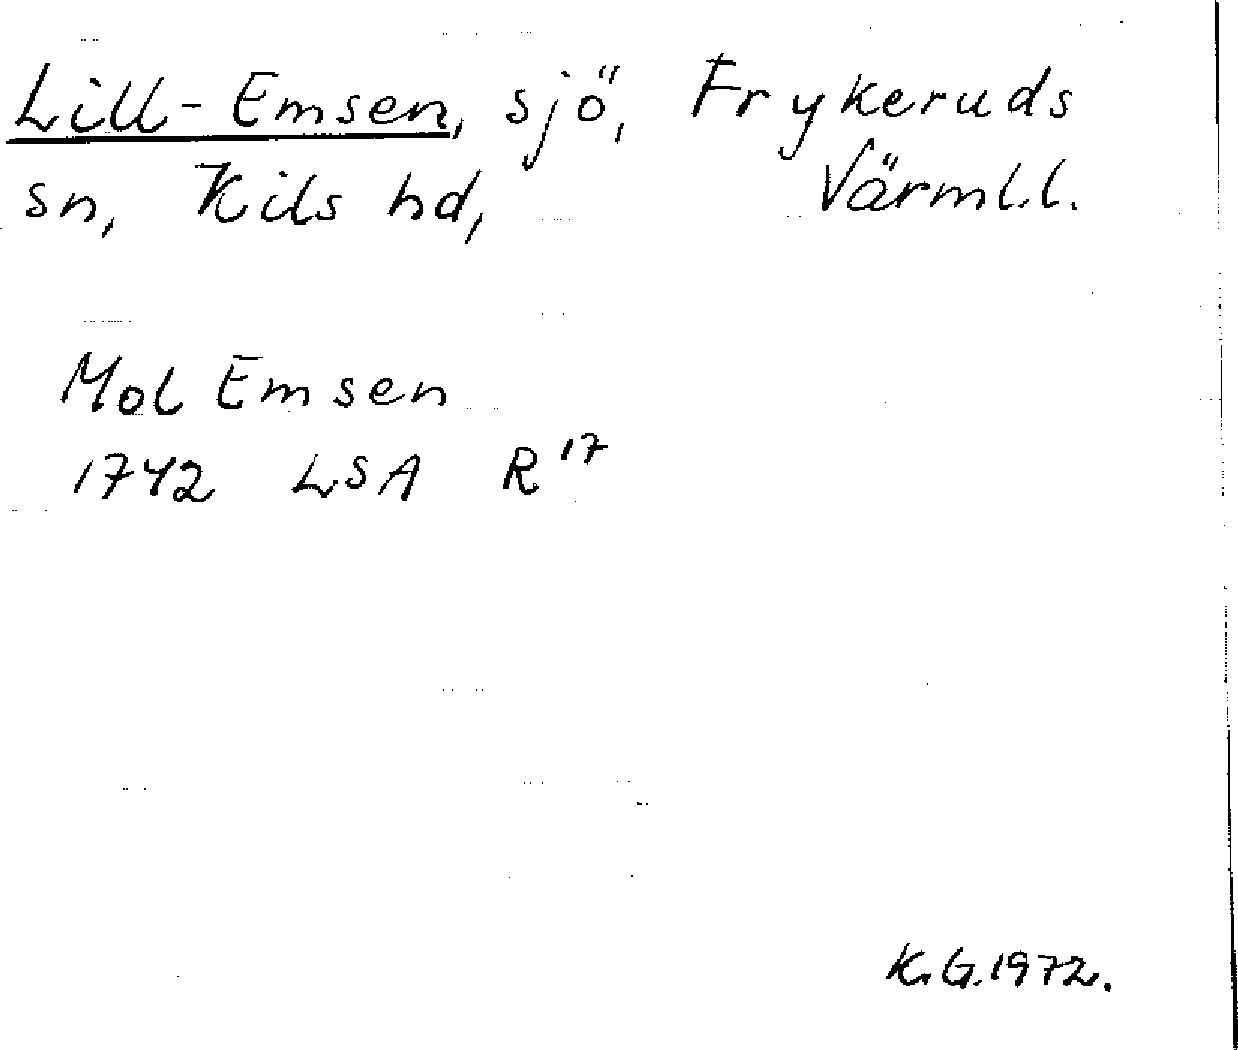 Lill-Emsen, sjö, Frykeruds
sn, Kils hd, Värml.l.
Mol Emsen
1742 LSA R 17
K.G.1972.